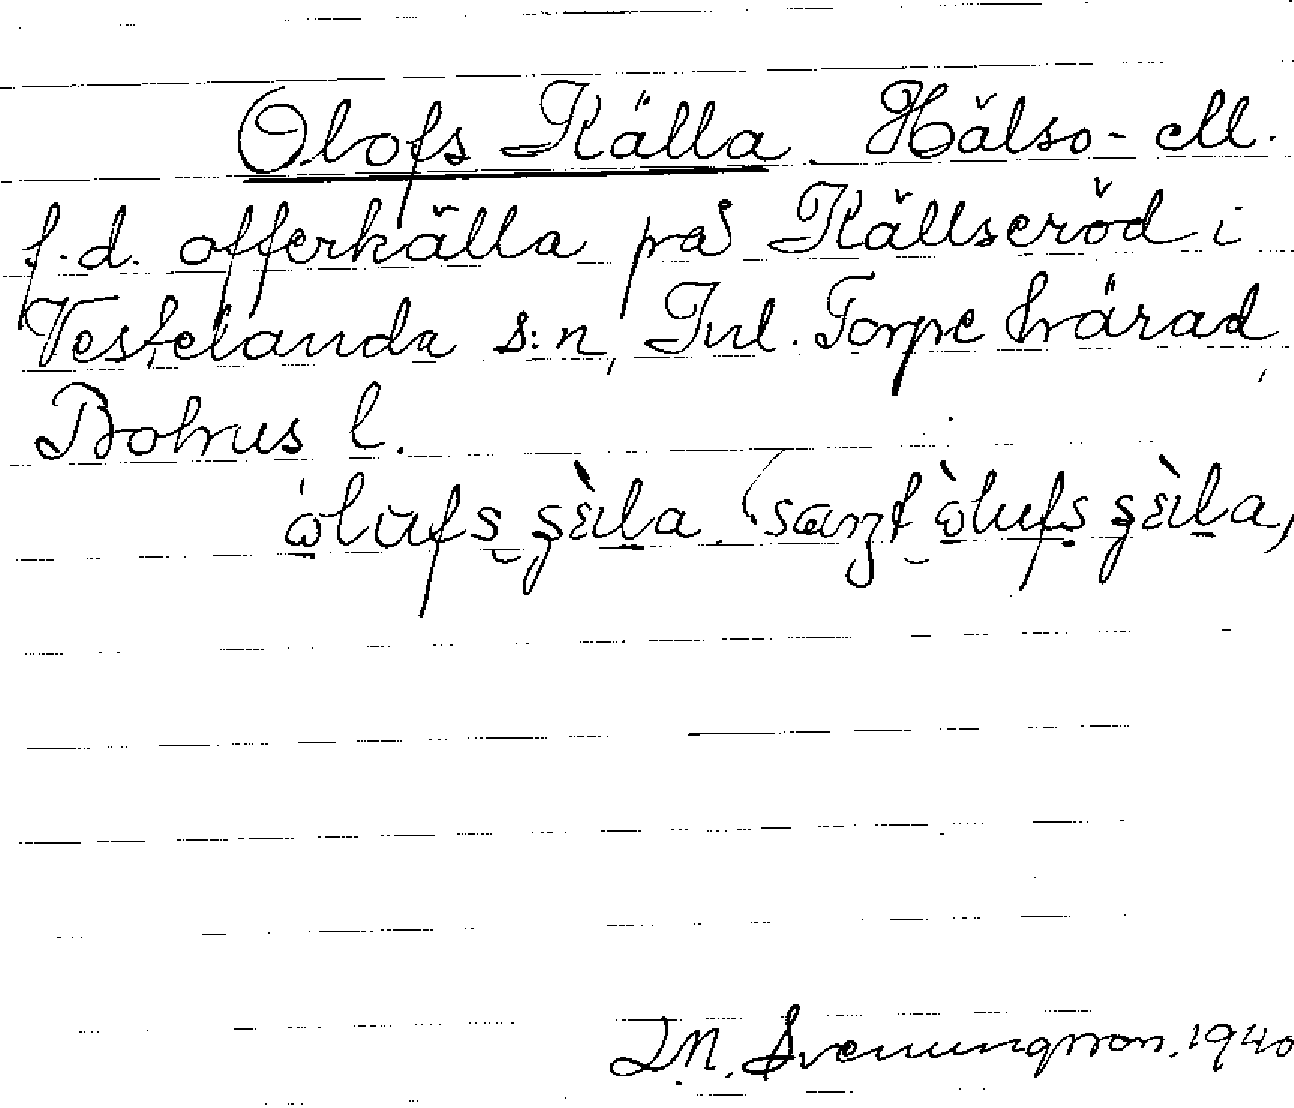 Olofs Källa. Hälso- ell.
f.d. offerkälla på Källseröd i
Vesteelanda s:n, Inl. Torpe härad,
Bohus l.
òlufs şɛ̀ıla. (saŋt òlufs şɛ̀ıla,
J.N. Svenungsson. 1940